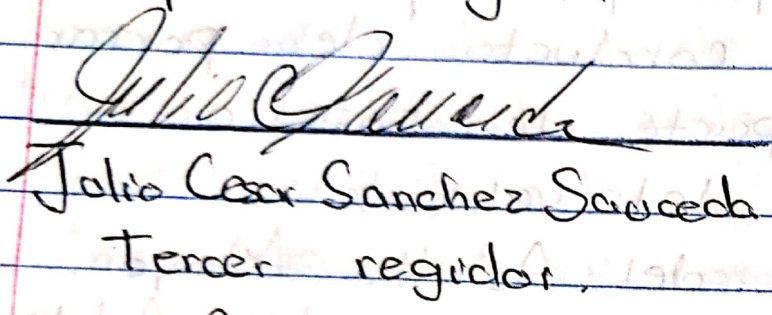 Julio C Sauceda
Julio Cesar Sanchez Sauceda
Tercer regidor.